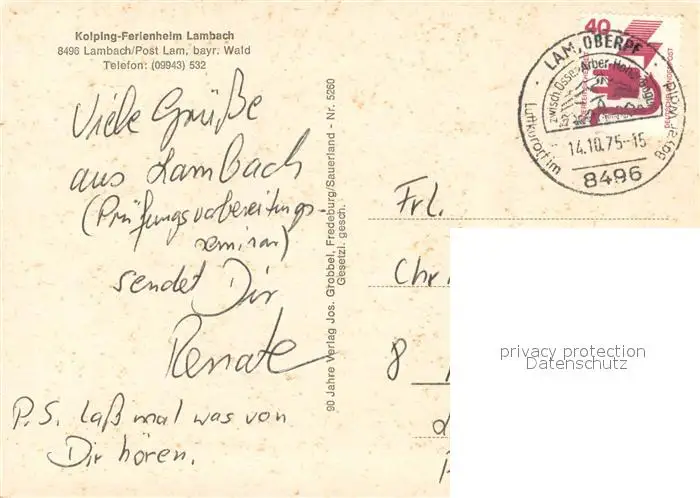 Kolping-Ferienheim Lambach
8496 Lambach/Post Lam, bayr. Wald
Telefon: (09943) 532
Viele Grüße
aus Lambach
(Prüfungsvorbereitungs-
seminar)
sendet Dir
Renate
P.S. Laß mal was von
Dir hören.
90 Jahre Verlag Jos. Grobbel, Fredeburg/Sauerland - Nr. 5260
Gesetzl. gesch.
40
LAM, OBERPF
Luftkurort im
14.10.75-15
8496
Frl.
Chr
8
privacy protection
Datenschutz